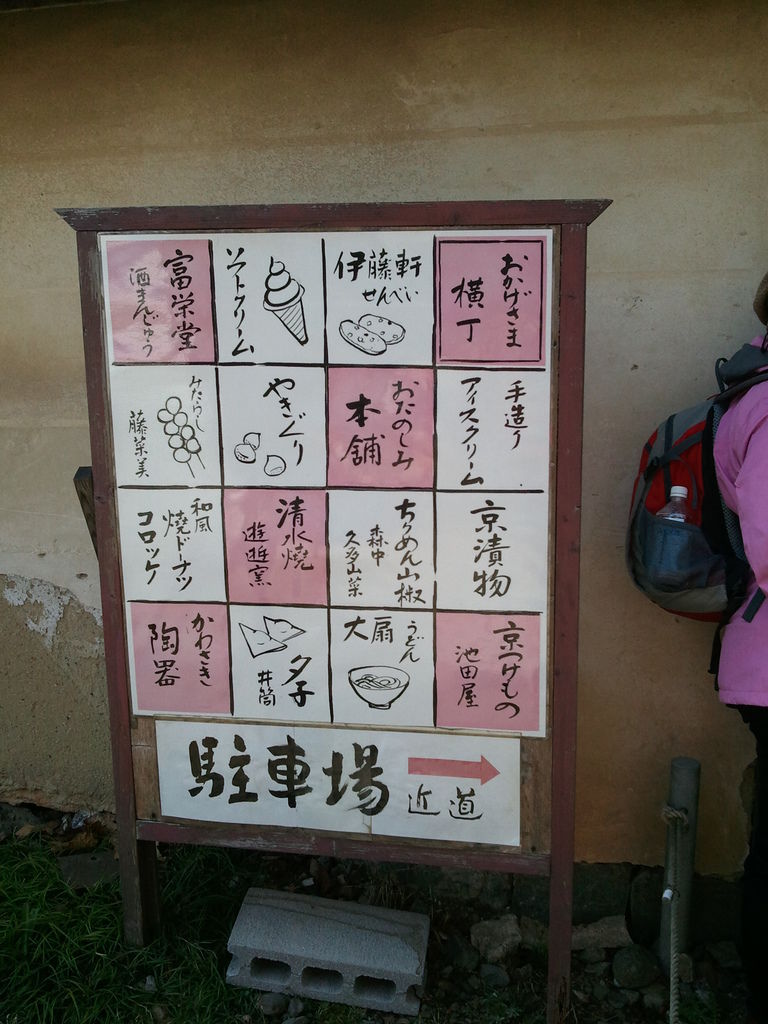 おかげさま
横丁
伊藤軒
せんべい
ソフトクリーム
富栄堂
酒まんじゅう
手造り
アイスクリーム
おたのしみ
本舗
やきぐり
みたらし
藤菜美
京漬物
ちりめん山椒
森中
久多山菜
清水焼
遊逰窯
和風
焼ドーナツ
コロッケ
京つけもの
池田屋
うどん
大扇
夕子
井筒
かわさき
陶器
駐車場
近道